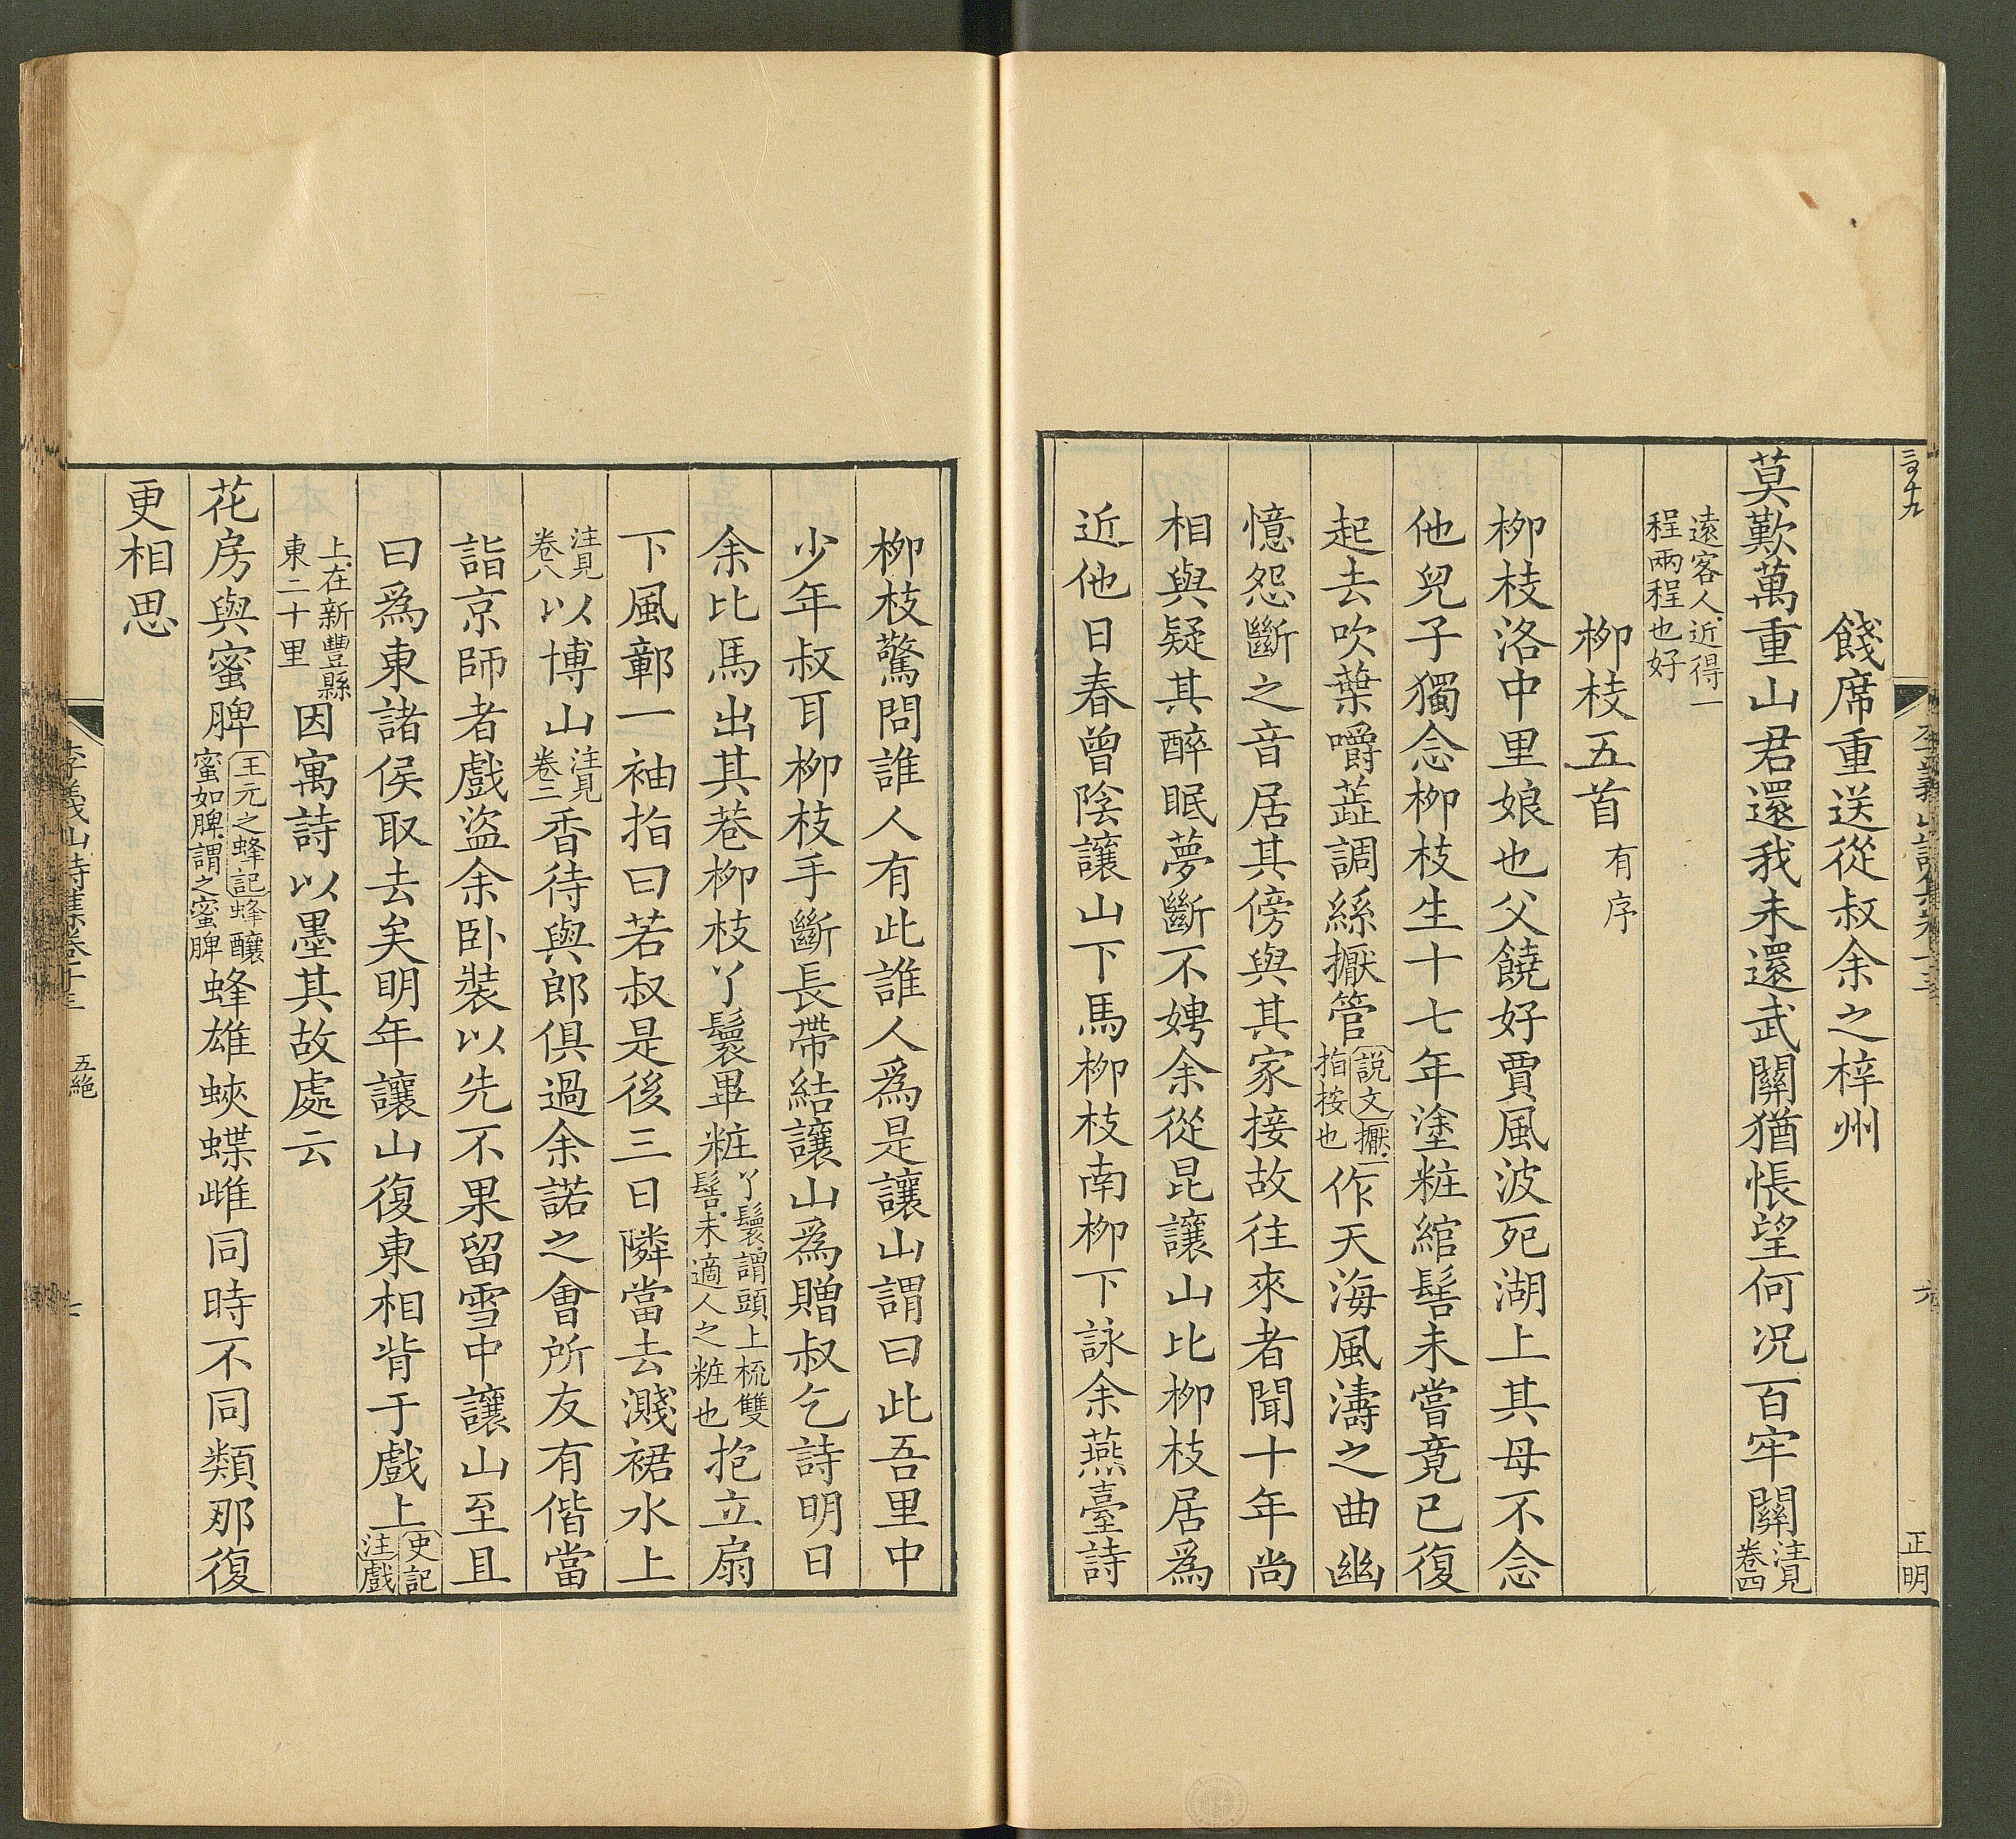 餞席重送從叔余之梓州
莫歎萬重山君還我未還武關猶悵望何况百牢關注見卷四
遠客人近得一
程兩程也好
柳枝五首有序
柳枝洛中里娘也父饒好賈風波死湖上其母不念
他兒子獨念柳枝生十七年塗粧綰髻未嘗竟已復
起去吹葉嚼蕋調絲擫管說文擫一指按也作天海風濤之曲幽
憶怨斷之音居其傍與其家接故往來者聞十年尚
相與疑其醉眠夢斷不娉余從昆讓山比柳枝居爲
近他日春曾陰讓山下馬柳枝南柳下詠余燕臺詩
李義山詩集卷十三
六
正明
柳枝驚問誰人有此誰人爲是讓山謂曰此吾里中
少年叔耳柳枝手斷長帶結讓山爲贈叔乞詩明日
余比馬出其巷柳枝丫鬟畢粧丫鬟謂頭上梳雙髻未適人之粧也抱立扇
下風鄣一袖指曰若叔是後三日隣當去濺裙水上
注見卷八以博山注見卷三香待與郎俱過余諾之會所友有偕當
詣京師者戲盜余卧裝以先不果留雪中讓山至且
曰爲東諸侯取去矣明年讓山復東相背于戲上史記注戲
上在新豐縣東二十里因寓詩以墨其故處云
花房與蜜脾王元之蜂記蜂釀蜜如脾謂之蜜脾蜂雄蛺蝶雌同時不同類那復
更相思
李義山詩集卷十三
五絶
七